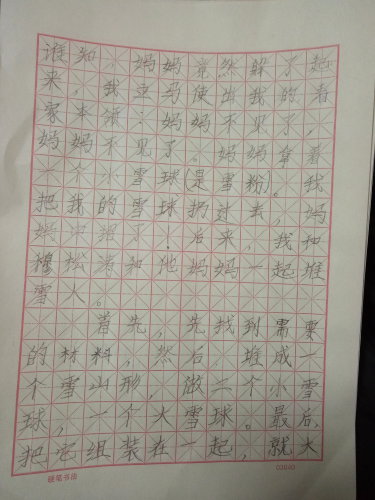 谁知，妈妈竟然躲了起
来，我立马使出我的看
家本领：妈妈不见了，
妈妈不见了。妈妈拿着
一个小雪球（是雪粉）。我
把我的雪球扔过去，妈
妈中招了！后来，我和
穆松涛和他妈妈一起堆
雪大。
首先，先找到需要
的材料，然后，堆成一
个雪山形，做二个小雪
球，一个大雪球。最后，
把它组装在一起，就大
硬笔书法